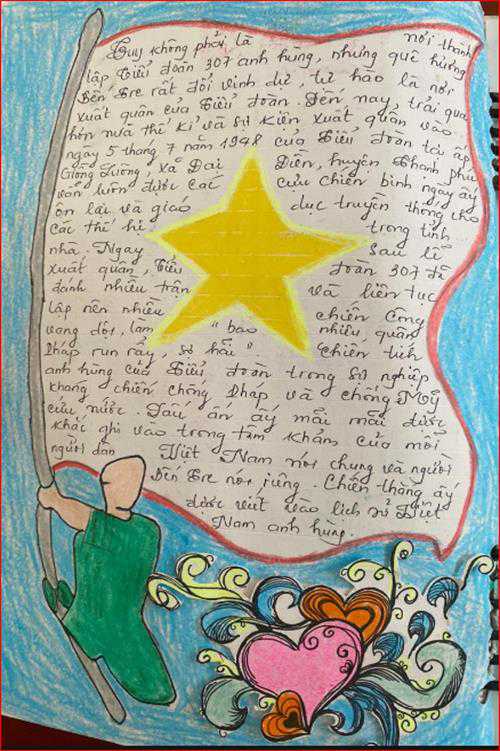 Tuy không phải là nơi thành
lập Tiểu đoàn 307 anh hùng, nhưng quê hương
Bến Tre rất đổi vinh dự, tự hào là nơi
xuất quân của Tiểu đoàn. Đến nay, trải qua
hơn nửa thế kỉ và sự kiện xuất quân vào
ngày 5 tháng 7 năm 1948 của Tiểu đoàn tại ấp
Giồng Luông, xã Đại Điền, huyện Thạnh Phú
vẫn luôn được các cựu chiến binh ngày ấy
ôn lại và giáo dục truyền thống cho
các thế hệ trong tỉnh
nhà. Ngay sau lễ
xuất quân, Tiểu đoàn 307 đã
đánh nhiều trận và liên tục
lập nên nhiều chiến công
vang dội, làm "bao nhiêu quân
Pháp run rẩy, sợ hãi" chiến tích
anh hùng của Tiểu đoàn trong sự nghiệp
kháng chiến chống Pháp và chống Mỹ
cứu nước. Dấu ấn ấy mãi mãi được
khắc ghi vào trong tâm khảm của mỗi
người dân Việt Nam nói chung và người
Bến Tre nói riêng. Chiến thắng ấy
được viết vào lịch sử Việt
Nam anh hùng.